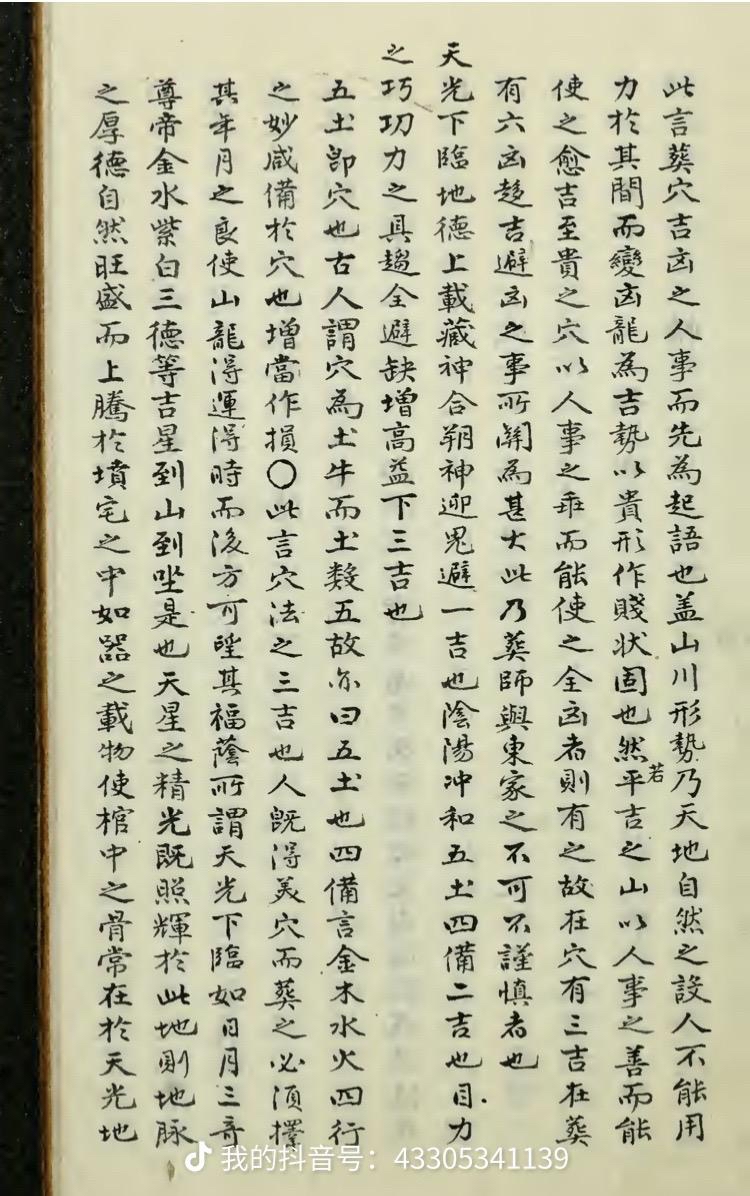 此言葬穴吉凶之人事而先為起語也盖山川形勢乃天地自然之設人不能用
力於其間而變凶龍為吉勢以貴形作賤狀固也然若平吉之山以人事之善而能
使之愈吉至貴之穴以人事之乖而能使之全凶者則有之故在穴有三吉在葬
有六凶趍吉避凶之事所關為甚大此乃葬師與東家之不可不謹慎者也
天光下臨地德上載藏神合朔神迎鬼避一吉也陰陽冲和五土四備二吉也目力
之巧功力之具趨全避缺增高益下三吉也
五土即穴也古人謂穴為土牛而土数五故亦曰五土也四備言金木水火四行
之妙咸備於穴也增當作損〇此言穴法之三吉也人既得美穴而葬之必須擇
其年月之良使山龍得運得時而後方可望其福蔭所謂天光下臨如日月三奇
尊帝金水紫白三德等吉星到山到坐是也天星之精光既照輝於此地則地脉
之厚德自然旺盛而上騰於墳宅之中如器之載物使棺中之骨常在於天光地
我的抖音号：43305341139